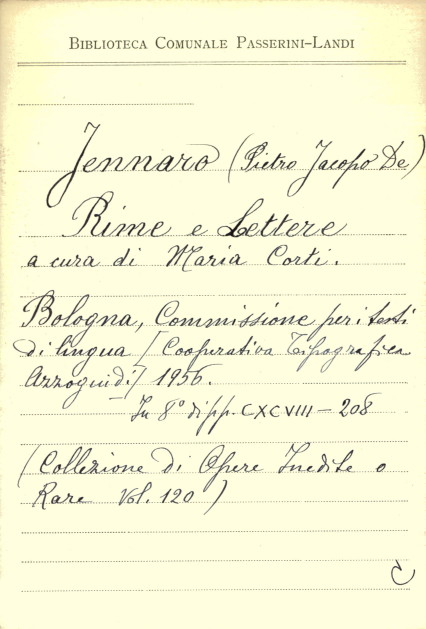 BIBLIOTECA COMUNALE PASSERINI-LANDI
Jennaro (Pietro Jacopo De)
Rime e Lettere
a cura di Maria Corti.
Bologna, Commissione per i testi
di lingua / Cooperativa Tipografica
Azzoguidi / 1956.
In 8° di pp. CXCVIII - 208
(Collezione di Opere Inedite o
Rare Vol. 120)
C